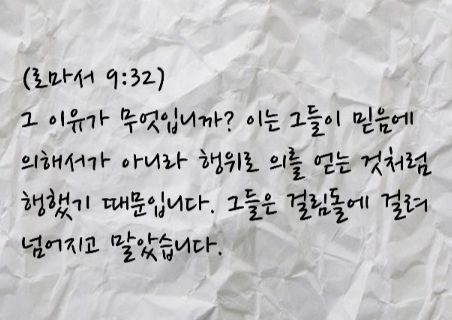 (로마서 9:32)
그 이유가 무엇입니까? 이는 그들이 믿음에
의해서가 아니라 행위로 의를 얻는 것처럼
행했기 때문입니다. 그들은 걸림돌에 걸려
넘어지고 말았습니다.